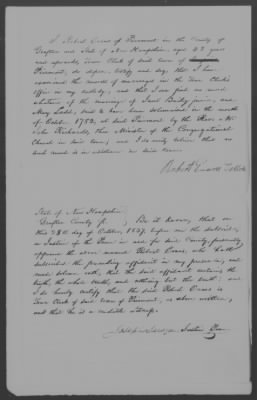 I, Robert Evans of Piermont in the County of
Grafton and State of New Hampshire, aged 42 years
and upwards, Town Clerk of said town of
Piermont, do depose, certify and say, that I have
examined the records of marriages in the Town Clerk's
office in my custody, and that I can find no record
whatever of the marriage of Bailey junior, and
Mary Ladd, said to have been solemnized in the month
of October 1782, at said Piermont by the Rev. Mr.
John Richards, then Minister of the Congregational
Church in said town; and I do verily believe that no
such record is in existence in said town.
Robert Evans T. Clerk
State of New Hampshire
Grafton County ss. Be it known, that on
this 28th day of October, 1837, before me the subscriber,
a Justice of the Peace in and for said County, personally
appeared the above named Robert Evans, who
subscribed the preceding affidavit in my presence, and
made solemn oath, that the said affidavit contains the
truth, the whole truth, and nothing but the truth; and
I do hereby certify that the said Robert Evans is
Town Clerk of said town of Piermont, as above written,
and that he is a credible witness.
Joseph Sawyer Justice Peace